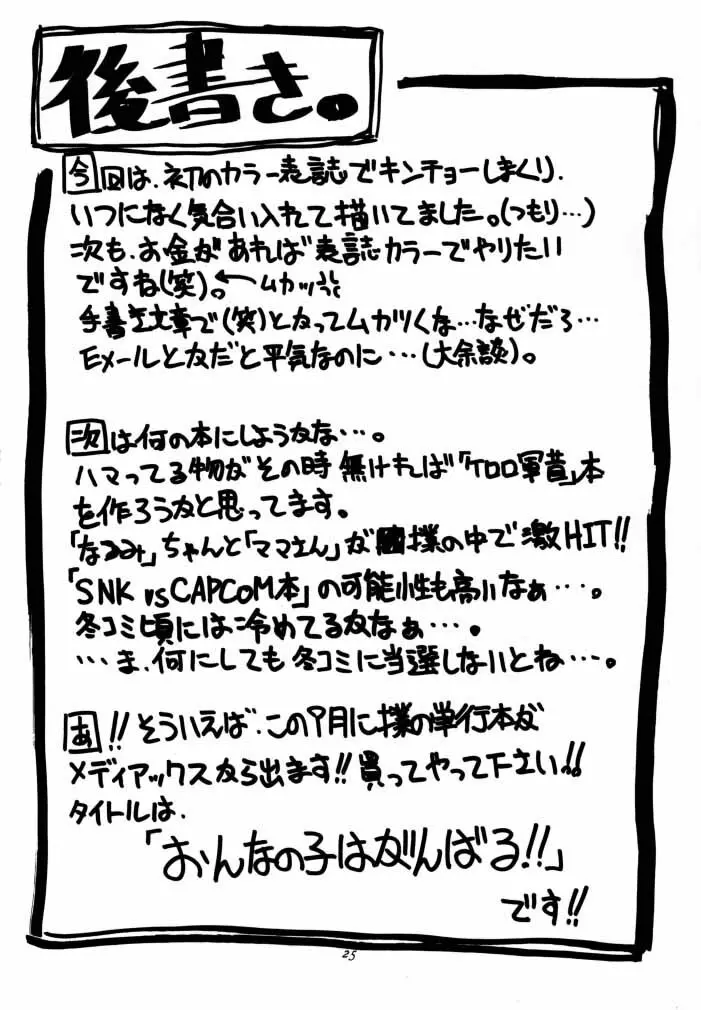 後書き。
今回は、初のカラー表誌でキンチョーしまくり、
いつになく気合い入れて描いてました。(つもり…)
次も、お金があれば表誌カラーでやりたい
ですね(笑)。←ムカッ
手書き文章で(笑)となってムカつくな…なぜだろ…
Eメールとかだと平気なのに…(大余談)。
次は何の本にしようかな…。
ハマってる物がその時無ければ「ケロロ軍曹」本
を作ろうかと思ってます。
「なるみ」ちゃんと「ママさん」が僕の中で激HIT!!
「SNK vs CAPCOM本」の可能性も高いなぁ…。
冬コミ頃には冷めてるかなぁ…。
…ま、何にしても冬コミに当選しないとね…。
あ!!そういえば、この9月に僕の単行本が
メディアックスから出ます!!買ってやって下さい!!
タイトルは、
「おんなの子はがんばる!!」
です!!
25